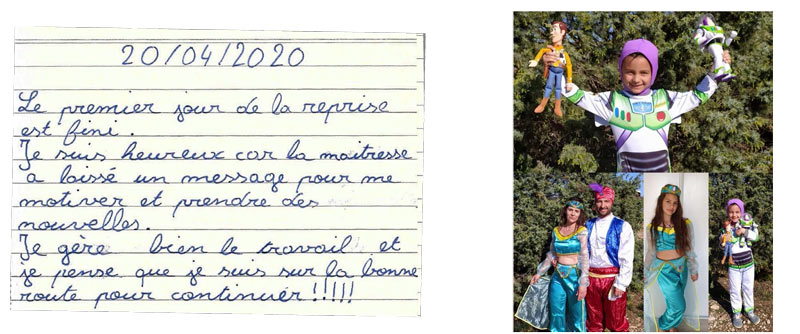 20/04/2020
Le premier jour de la reprise
est fini.
Je suis heureux car la maitresse
a laissé un message pour me
motiver et prendre des
nouvelles.
Je gère bien le travail et
je pense que je suis sur la bonne
route pour continuer !!!!!